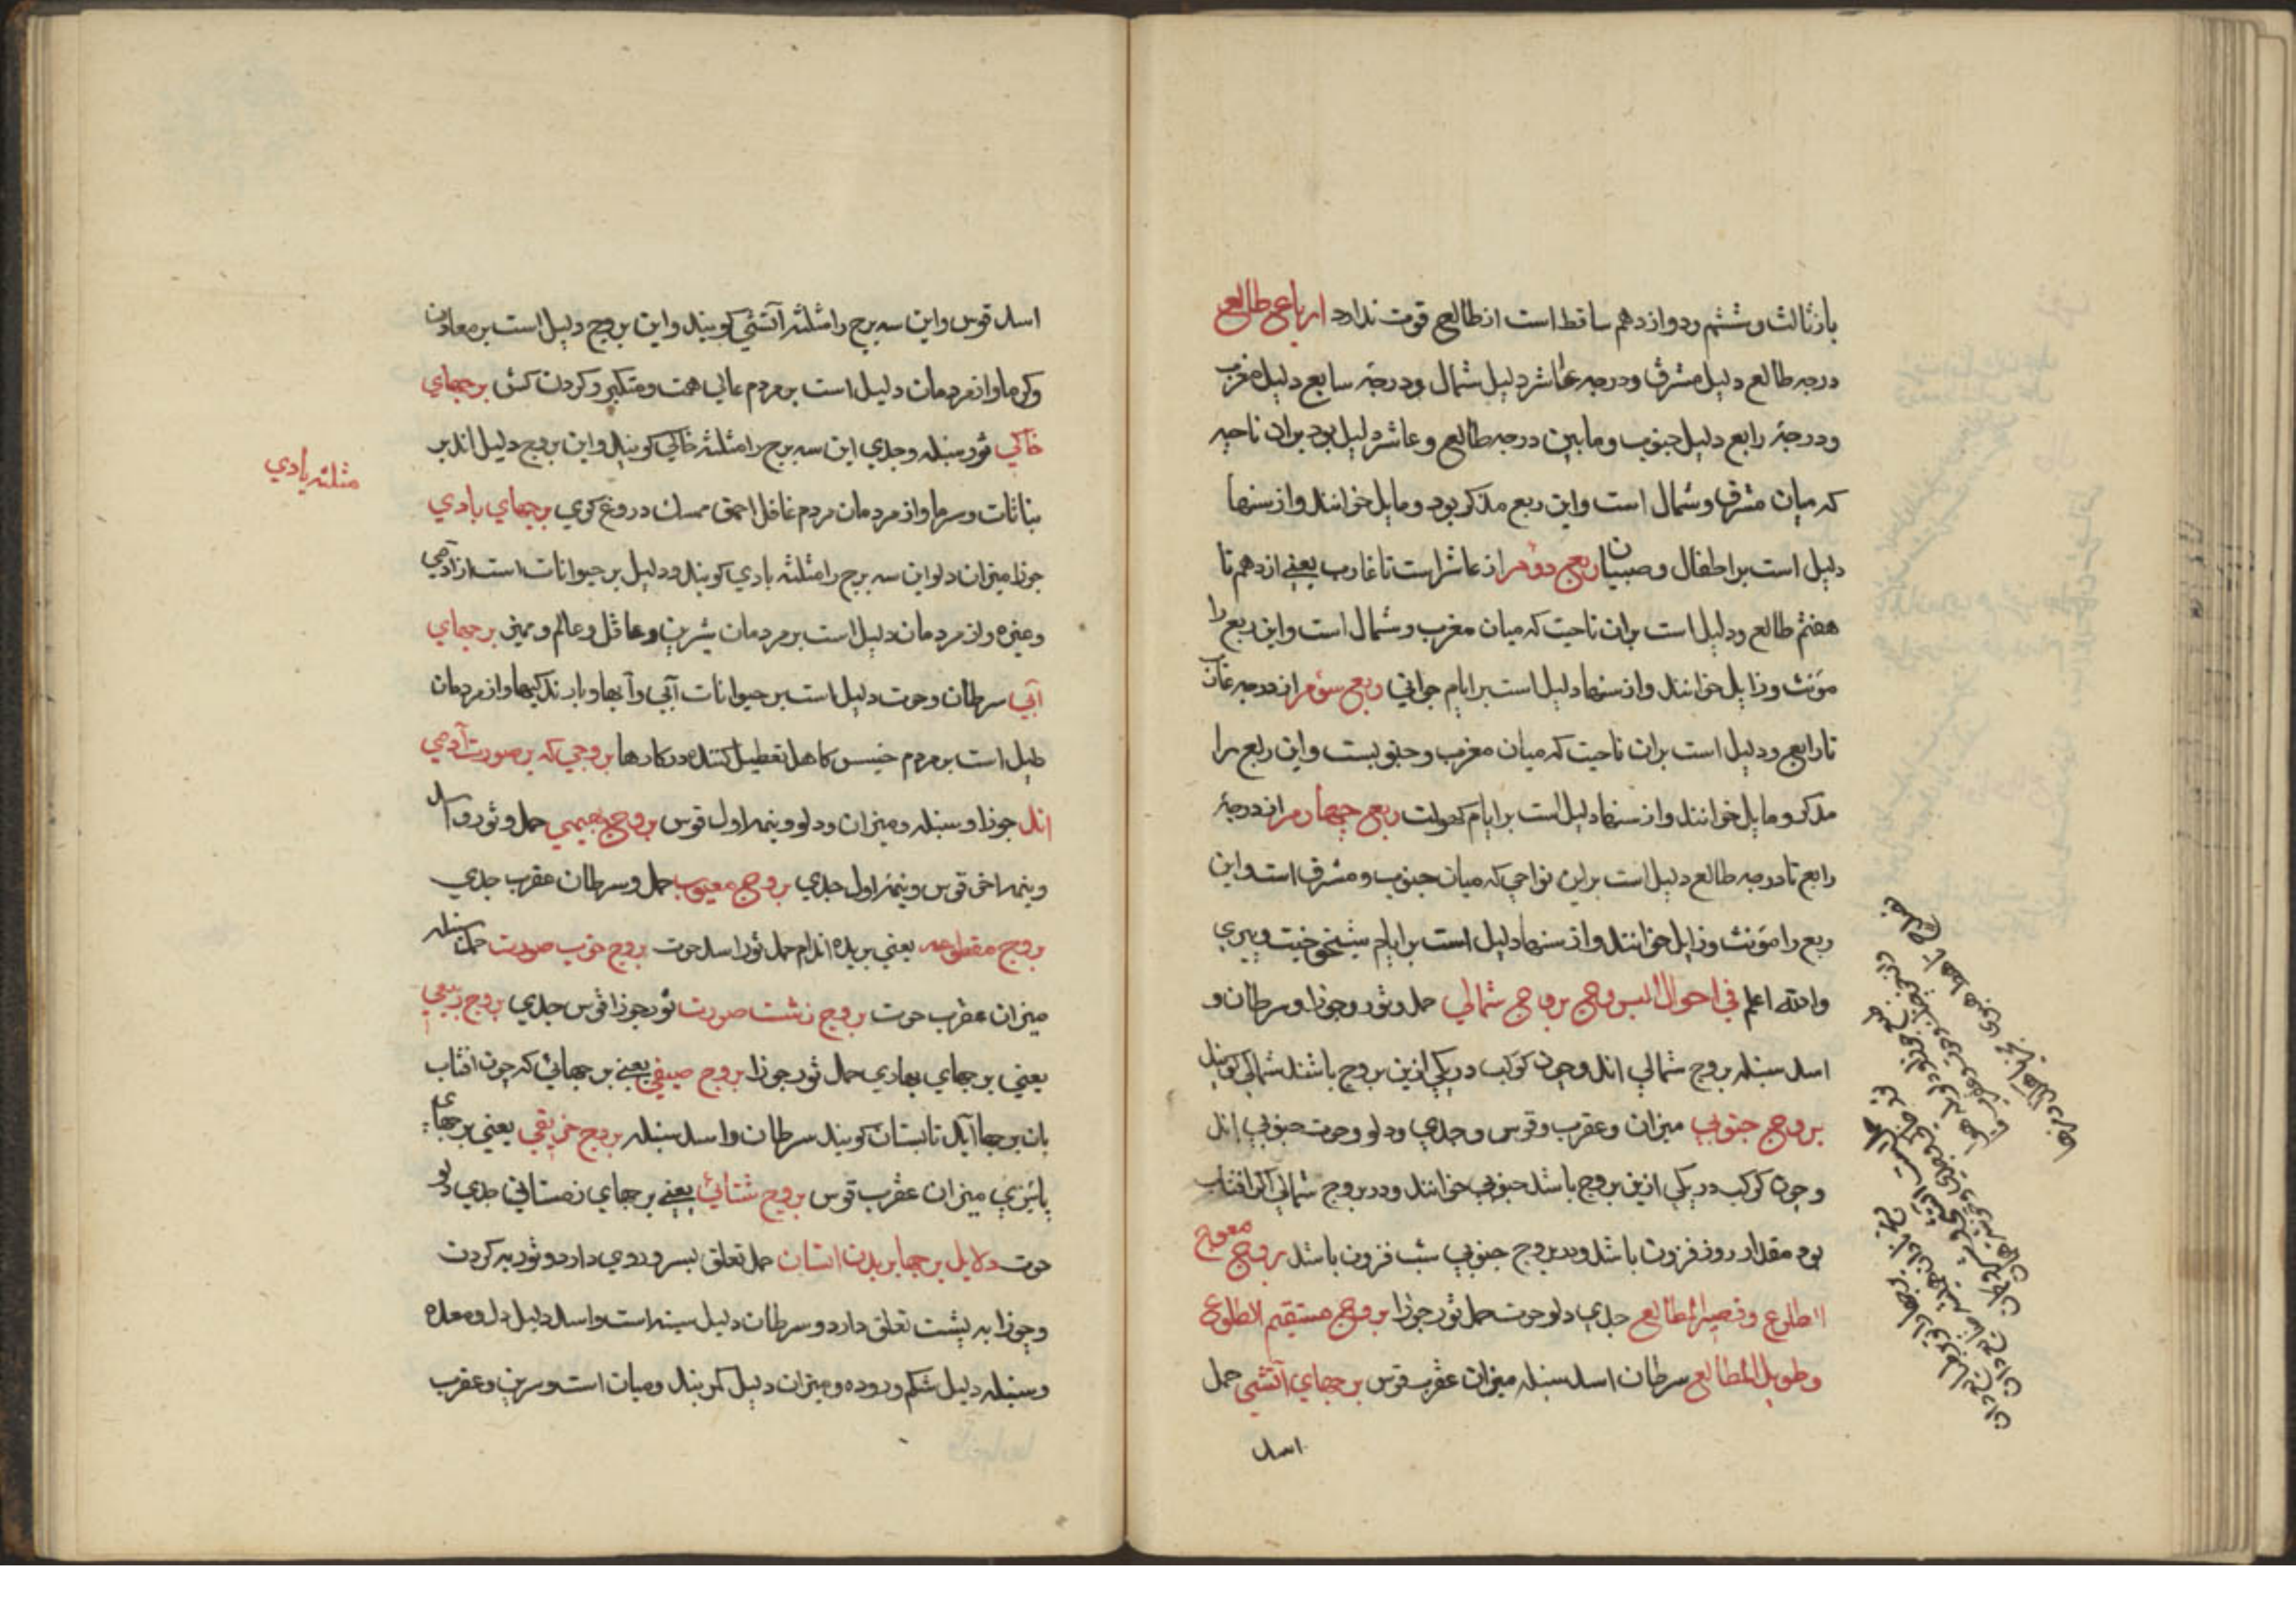 باز ثالث و ششم و دوازدهم ساقط است از طالع قوت ندارد ارباع طالع
درجه طالع دلیل مشرق و درجه عاشر دلیل شمال و درجۀ سابع دلیل مغرب
و درجۀ رابع دلیل جنوب و مابین درجه طالع و عاشر دلیل بود بران ناحیه
که میان مشرق و شمال است و این ربع مذکر بود و مایل خوانند و از سنها
دلیل است بر اطفال و صبیان ربع دوم از عاشر است تا غارب یعنے از دهم تا
هفتم طالع و دلیل است بران ناحیت که میان مغرب و شمال است و این ربع را
مؤنث و زایل خوانند و از سنها دلیل است بر ایام جوانی ربع سوم از درجه غارب
تا رابع و دلیل است بران ناحیت که میان مغرب و جنوبست و این ربع را
مذکر و مایل خوانند و از سنها دلیل است بر ایام کهولت ربع چهارم از درجۀ
رابع تا درجه طالع دلیل است براین نواحی که میان جنوب و مشرق است و این
ربع را مؤنث و زایل خوانند و از سنها دلیل است بر ایام شیخوخیت و پیری
والله اعلم في احوال البروج بروج شمالي حمل و ثور و جوزا و سرطان و
اسد سنبله بروج شمالي اند و چون کوکب در یکي ازین بروج باشند شمالي کویند
بروج جنوبي میزان و عقرب و قوس و جدي و دلو و حوت جنوبي اند
و چون کوکب در یکي ازین بروج باشد جنوبي خوانند و در بروج شمالي اکر افتاب
بود مقدار روز فزون باشد و در بروج جنوبي شب فزون باشد بروج معوج
الطلوع و قصیر المطالع جدي دلو حوت حمل ثور جوزا بروج مستقیم الطلوع
و طویل المطالع سرطان اسد سنبله میزان عقرب قوس برجهاي آتشي حمل
اسد
اسد قوس و این سه برج را مثلثه آتشي کویند و این بروج دلیل است بر معادن
و کرما و از مردمان دلیل است بر مردم عالي همت و متکبر و کردن کش برجهاي
خاکي ثور سنبله و جدي این سه برج را مثلثه خاکي کویند و این بروج دلیل اند بر
نباتات و سرما و از مردمان مردم غافل احمق ممسك دروغ کوي برجهاي بادي
مثلثه بادي
جوزا میزان دلو این سه برج را مثلثه بادي کویند و دلیل بر حیوانات است از آدمي
و غیره و از مردمان دلیل است بر مردمان شیرین و عاقل و عالم و ممیز برجهاي
آبي سرطان و حوت دلیل است بر حیوانات آبي و آبها و بارندکیها و از مردمان
دلیل است بر مردم خسیس کاهل تعطیل کننده در کارها بروجي که بر صورت آدمي
اند جوزا و سنبله و میزان و دلو و نیمه اول قوس بروج بهیمي حمل و ثور و اسد
و نیمه اخر قوس و نیمۀ اول جدي بروج معیوب حمل و سرطان عقرب جدي
بروج مقطوعه یعني بریده اندام حمل ثور اسد حوت بروج خوب صورت حمل سنبله
میزان عقرب حوت بروج زشت صورت ثور جوزا قوس جدي بروج ربیعي
یعني برجهاي بهاري حمل ثور جوزا بروج صیفي یعنے برجهائي که چون افتاب
بان برجها آید تابستان کویند سرطان و اسد سنبله بروج خریفي یعني برجهاي
پائیزي میزان عقرب قوس بروج شتائي یعنے برجهاي زمستاني جدي دلو
حوت دلایل برجها بر بدن انسان حمل تعلق بسر و روي دارد و ثور به کردن
و جوزا به پشت تعلق دارد و سرطان دلیل سینه است و اسد دلیل دل و معده
و سنبله دلیل شکم و روده و میزان دلیل کمر بند و میان است و سرین و عقرب